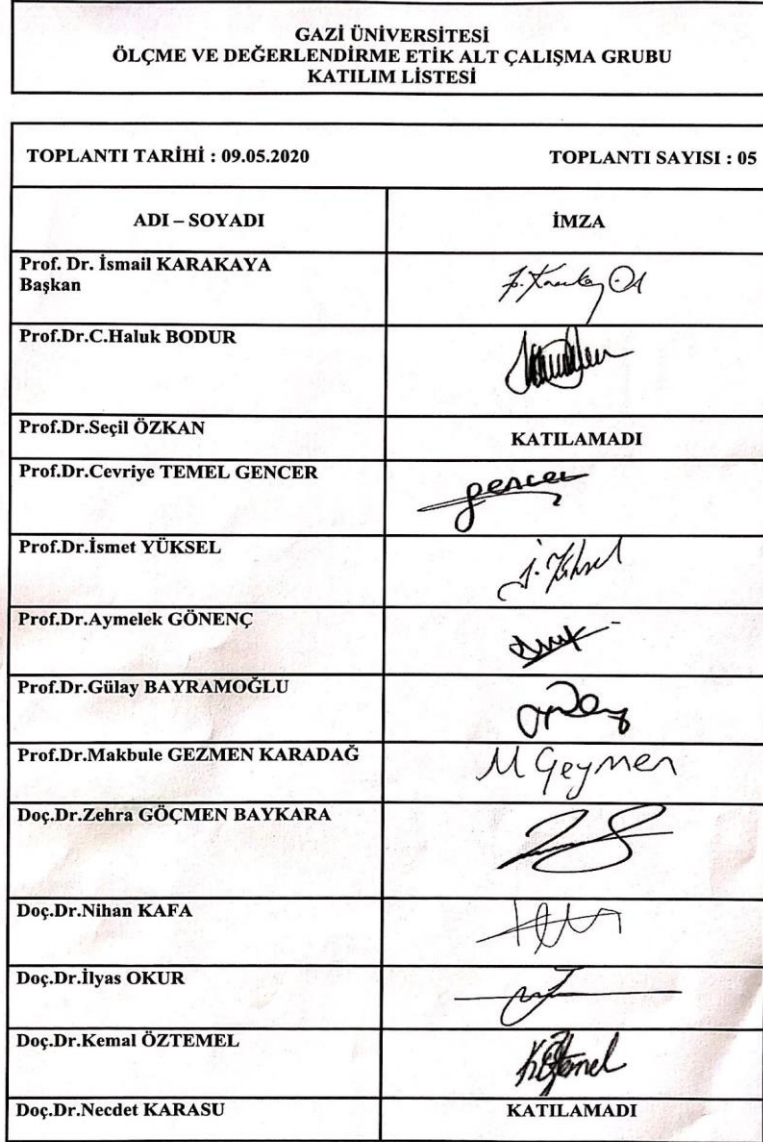 GAZİ ÜNİVERSİTESİ
ÖLÇME VE DEĞERLENDİRME ETİK ALT ÇALIŞMA GRUBU
KATILIM LİSTESİ
TOPLANTI TARİHİ : 09.05.2020 TOPLANTI SAYISI : 05
ADI – SOYADI İMZA
Prof. Dr. İsmail KARAKAYA
Başkan
Prof.Dr.C.Haluk BODUR
Prof.Dr.Seçil ÖZKAN KATILAMADI
Prof.Dr.Cevriye TEMEL GENCER gencer
Prof.Dr.İsmet YÜKSEL
Prof.Dr.Aymelek GÖNENÇ
Prof.Dr.Gülay BAYRAMOĞLU
Prof.Dr.Makbule GEZMEN KARADAĞ M Gezmen
Doç.Dr.Zehra GÖÇMEN BAYKARA
Doç.Dr.Nihan KAFA
Doç.Dr.İlyas OKUR
Doç.Dr.Kemal ÖZTEMEL
Doç.Dr.Necdet KARASU KATILAMADI